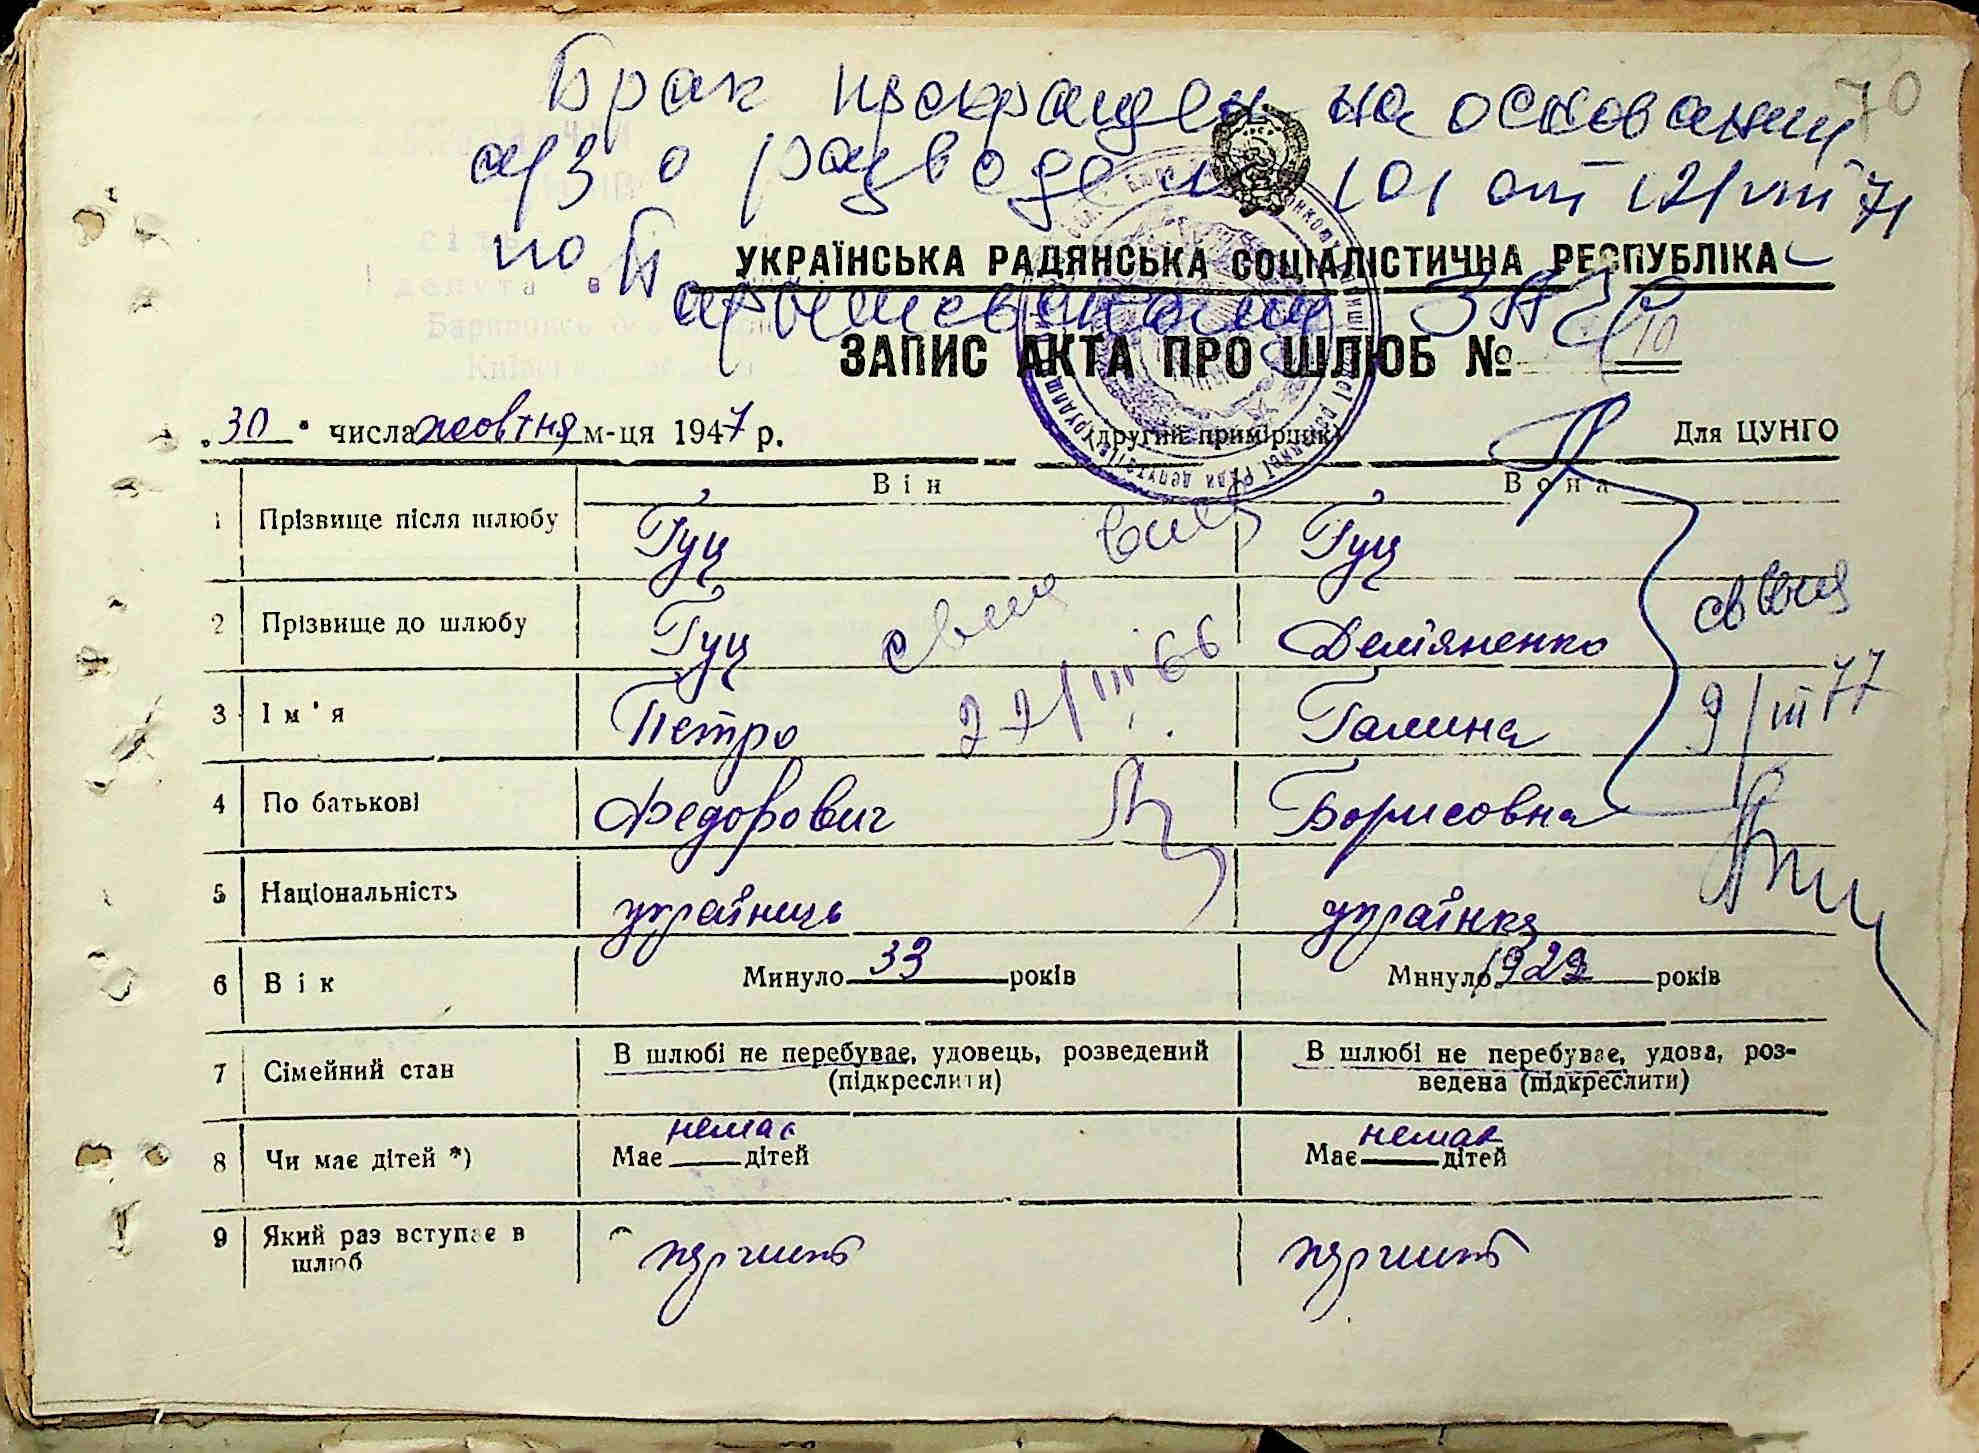 70
Брак прекращен на основании
а/з о разводе № 101 от 12/VIII 71
по Б
УКРАЇНСЬКА РАДЯНСЬКА СОЦІАЛІСТИЧНА РЕСПУБЛІКА
ЗАПИС АКТА ПРО ШЛЮБ № 10
„30“ числа жовтня м-ця 1947 р.
(другий примірник)
Для ЦУНГО
Він Вона
1 Прізвище після шлюбу Гуц Гуц
2 Прізвище до шлюбу Гуц Дем'яненко
3 Ім'я Петро Галина
4 По батькові Федорович Борисовна
5 Національність українець українка
6 Вік Минуло 33 років Минуло 1923 років
7 Сімейний стан В шлюбі не перебуває, удовець, розведений (підкреслити) В шлюбі не перебуває, удова, роз-
ведена (підкреслити)
8 Чи має дітей *) Має немає дітей Має немає дітей
9 Який раз вступає в
шлюб
22/III 66
9/III 77